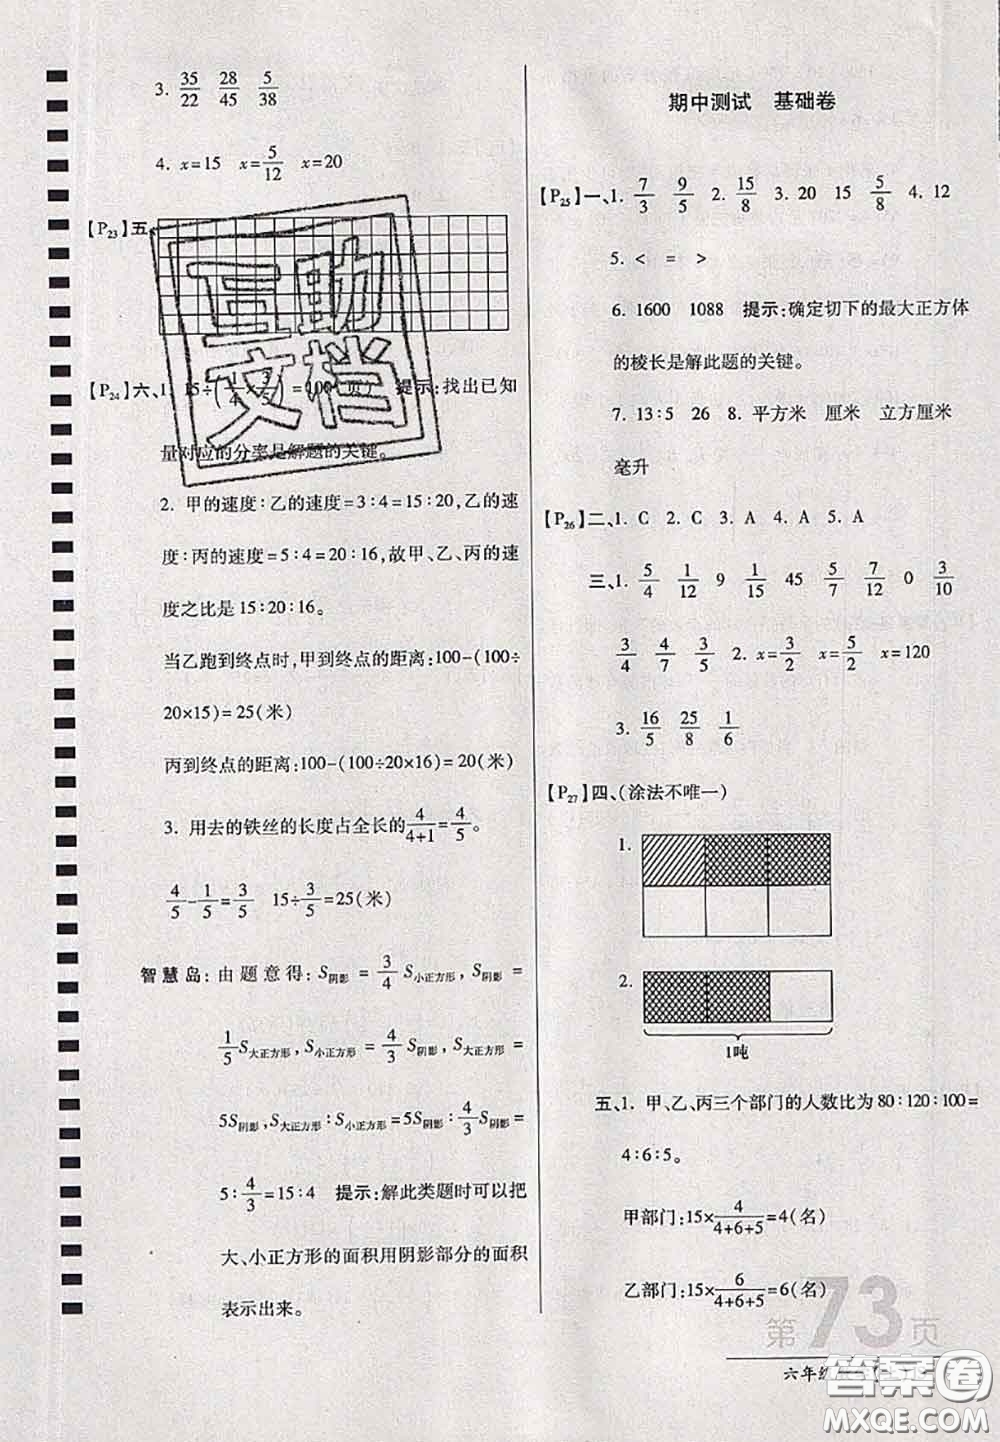 3. 35/22 28/45 5/38
4. x=15 x=5/12 x=20
【P23】五、
【P24】六、1. 15÷(1/4×3/5)=100(页) 提示:找出已知
量对应的分率是解题的关键。
2. 甲的速度:乙的速度=3:4=15:20,乙的速
度:丙的速度=5:4=20:16,故甲、乙、丙的速
度之比是15:20:16。
当乙跑到终点时,甲到终点的距离:100-(100÷
20×15)=25(米)
丙到终点的距离:100-(100÷20×16)=20(米)
3. 用去的铁丝的长度占全长的4/(4+1)=4/5。
4/5-1/5=3/5 15÷3/5=25(米)
智慧岛:由题意得:S阴影=3/4 S小正方形,S阴影=
1/5 S大正方形,S小正方形=4/3 S阴影,S大正方形=
5S阴影,S大正方形:S小正方形=5S阴影:4/3 S阴影=
5:4/3=15:4 提示:解此类题时可以把
大、小正方形的面积用阴影部分的面积
表示出来。
互助
文档
期中测试 基础卷
【P25】一、1. 7/3 9/5 2. 15/8 3. 20 15 5/8 4. 12
5. < = >
6. 1600 1088 提示:确定切下的最大正方体
的棱长是解此题的关键。
7. 13:5 26 8. 平方米 厘米 立方厘米
毫升
【P26】二、1. C 2. C 3. A 4. A 5. A
三、1. 5/4 1/12 9 1/15 45 5/7 7/12 0 3/10
3/4 4/7 3/5 2. x=3/2 x=5/2 x=120
3. 16/5 25/8 1/6
【P27】四、(涂法不唯一)
1.
2.
1吨
五、1. 甲、乙、丙三个部门的人数比为80:120:100=
4:6:5。
甲部门:15×4/(4+6+5)=4(名)
乙部门:15×6/(4+6+5)=6(名)
第73页
六年级
答案圈
MXQE.COM